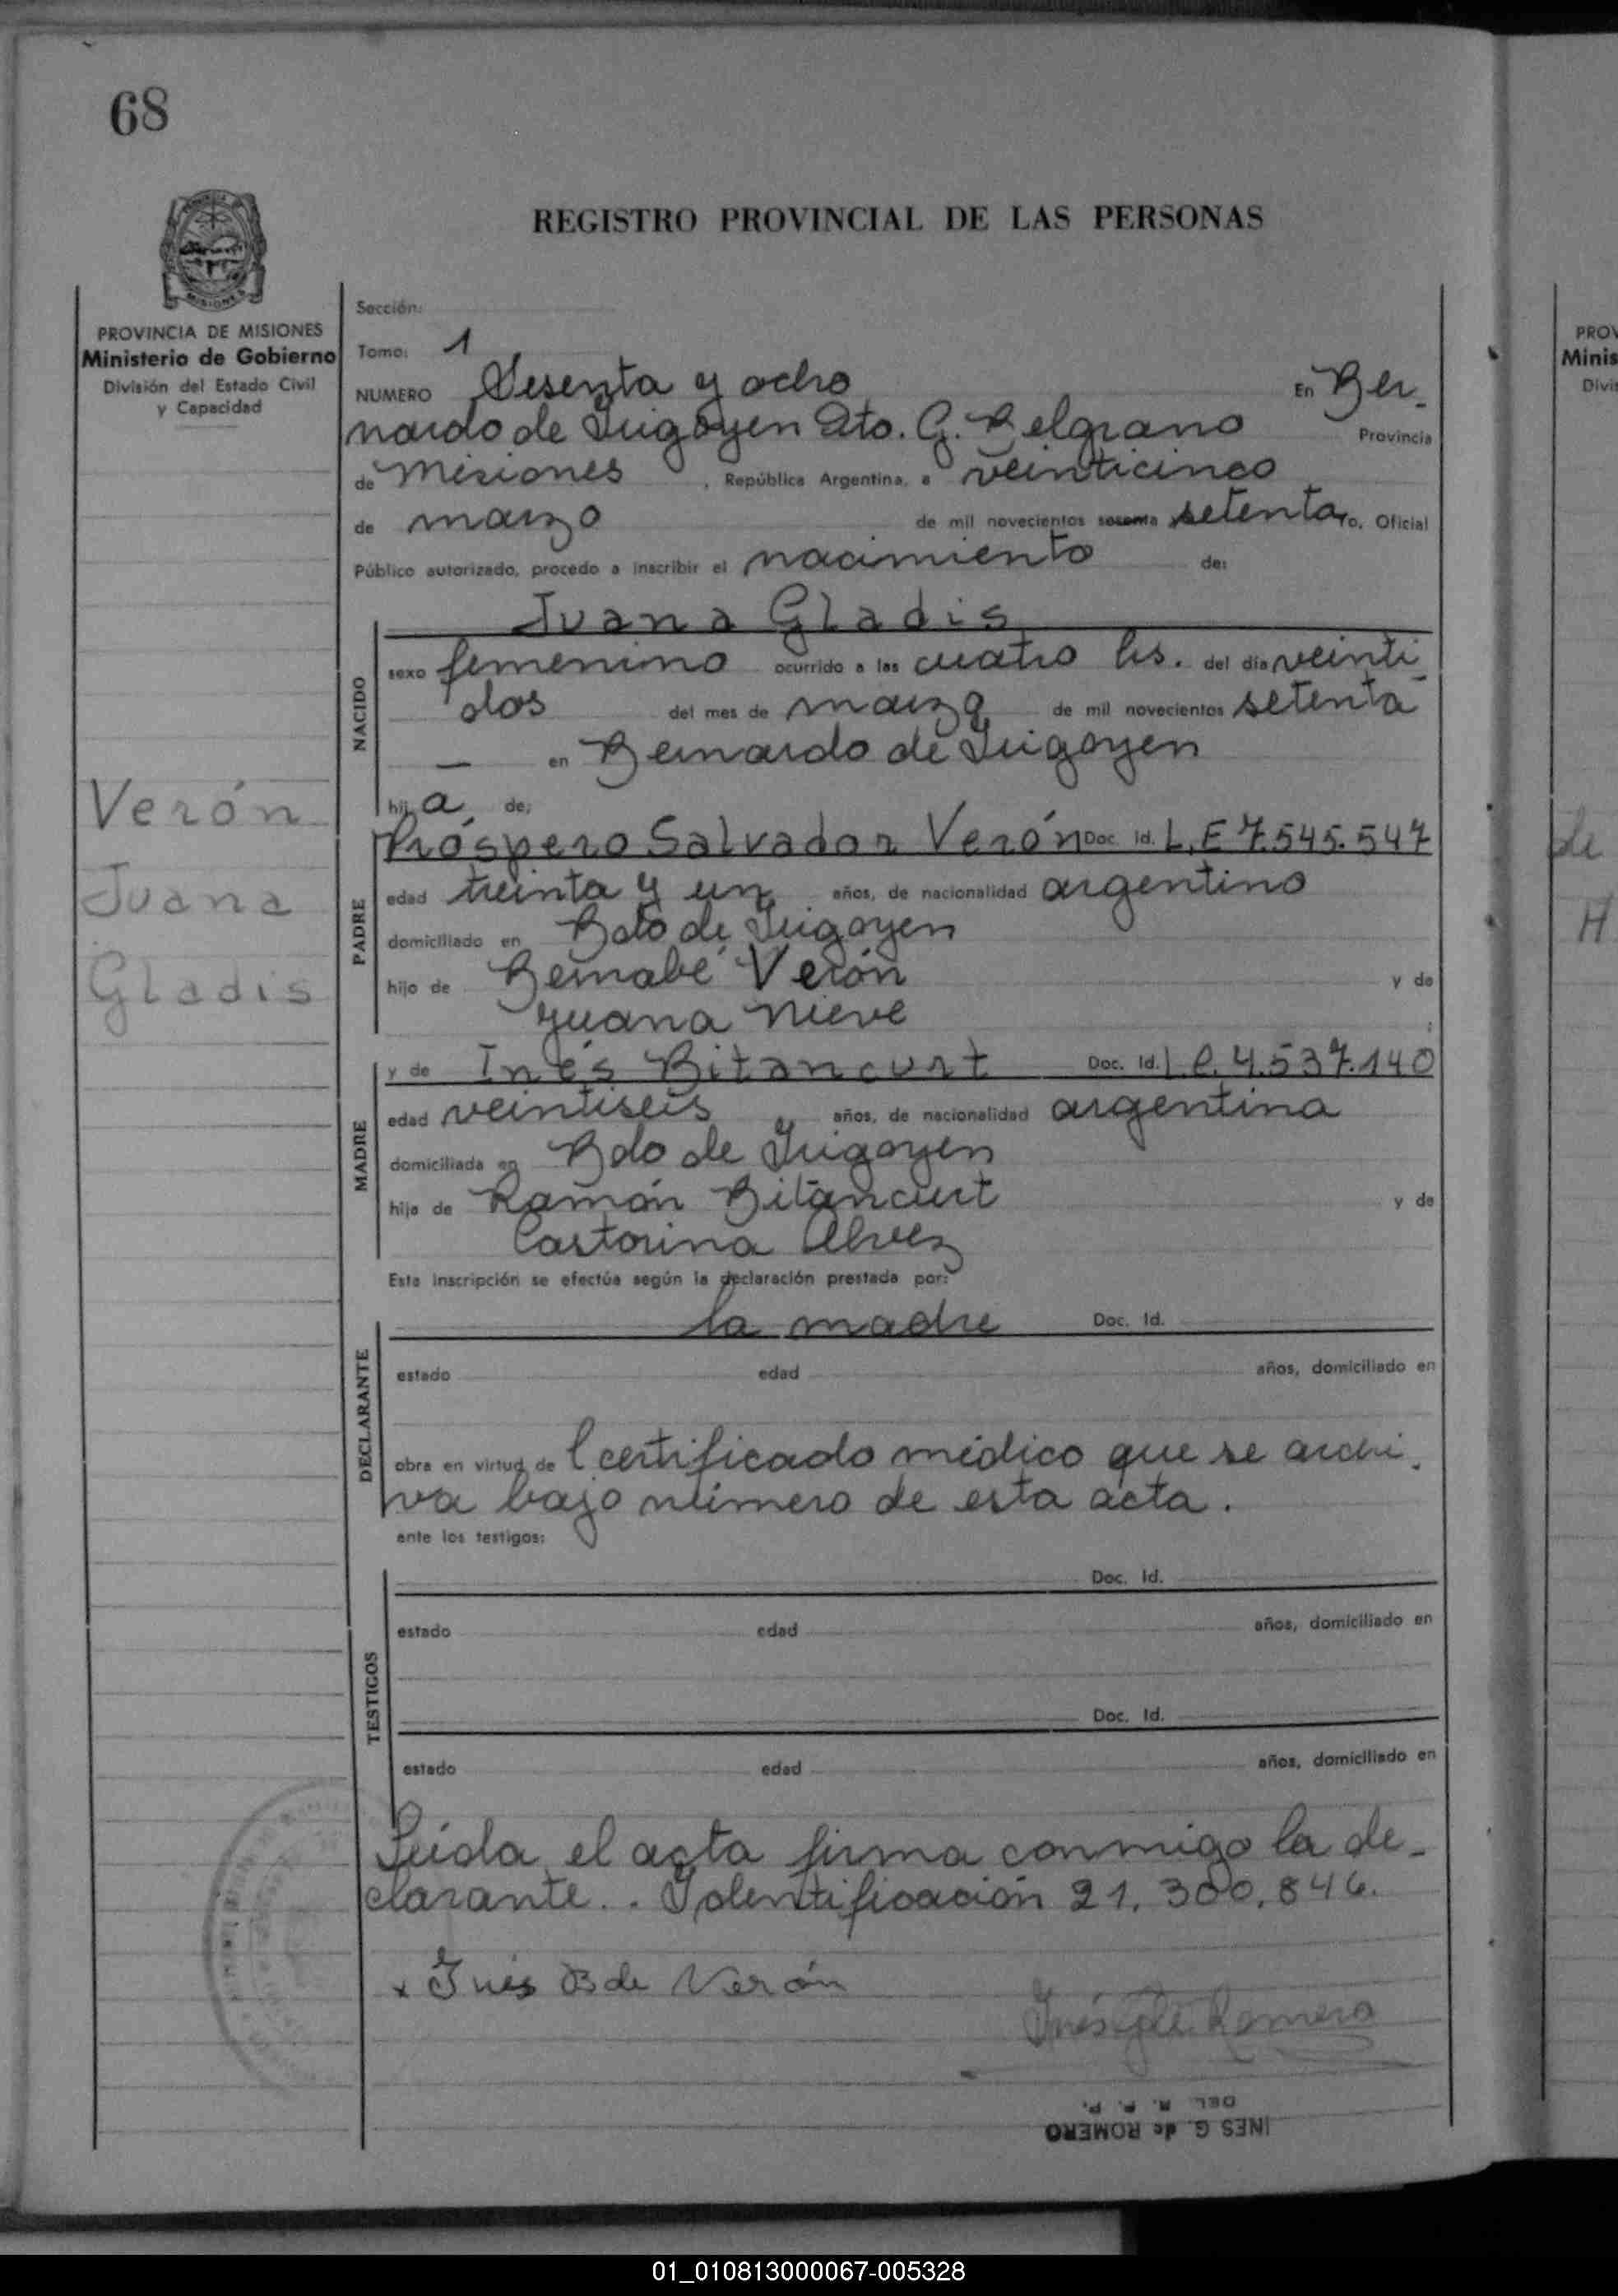 68
REGISTRO PROVINCIAL DE LAS PERSONAS
PROVINCIA DE MISIONES
Ministerio de Gobierno
División del Estado Civil
y Capacidad
Sección:
Tomo: 1
NUMERO Sesenta y ocho En Ber-
nardo de Irigoyen Dto. G. Belgrano Provincia
de Misiones, República Argentina, a veinticinco
de marzo de mil novecientos sesenta setenta Yo, Oficial
Público autorizado, procedo a inscribir el nacimiento de:
Juana Gladis
NACIDO
sexo femenino ocurrido a las cuatro hs. del día veinti
dos del mes de marzo de mil novecientos setenta
— en Bernardo de Irigoyen
hij a de:
Verón
Juana
Gladis
PADRE
Próspero Salvador Verón Doc. Id. L.E 7.545.547
edad treinta y un años, de nacionalidad argentino
domiciliado en Bdo de Irigoyen
hijo de Bernabé Verón y de
Juana Nieve
MADRE
y de Inés Bitancurt Doc. Id. L.C. 4.537.140
edad veintiseis años, de nacionalidad argentina
domiciliada en Bdo de Irigoyen
hija de Ramón Bitancurt y de
Castorina Alvez
Esta inscripción se efectúa según la declaración prestada por:
DECLARANTE
la madre Doc. Id.
estado edad años, domiciliado en
obra en virtud de l certificado médico que se archi-
va bajo número de esta acta.
ante los testigos:
TESTIGOS
Doc. Id.
estado edad años, domiciliado en
Doc. Id.
estado edad años, domiciliado en
Leída el acta firma conmigo la de-
clarante.. Identificación 21.300.846.
x Inés B de Verón
Inés G de Romero
DEL R. P. P.
INES G. de ROMERO
PROV
Minis
Divi
de
H
01_010813000067-005328